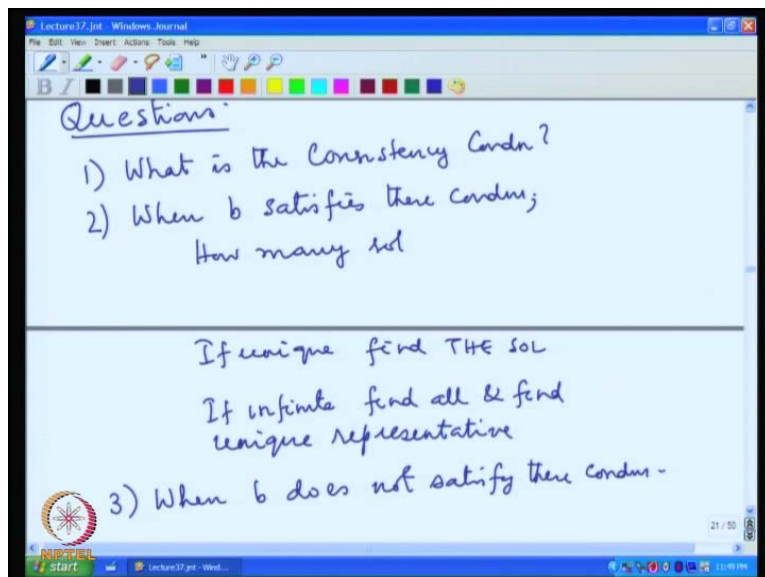 Lecture37.jnt - Windows Journal
File Edit View Insert Actions Tools Help
B I
Questions:
1) What is the Consistency Condn?
2) When b satisfies these condns;
How many sol
If unique find THE SOL
If infinite find all & find
unique representative
3) When b does not satisfy these condns -
21 / 50
NPTEL
start
Lecture37.jnt - Wind...
11:49 PM